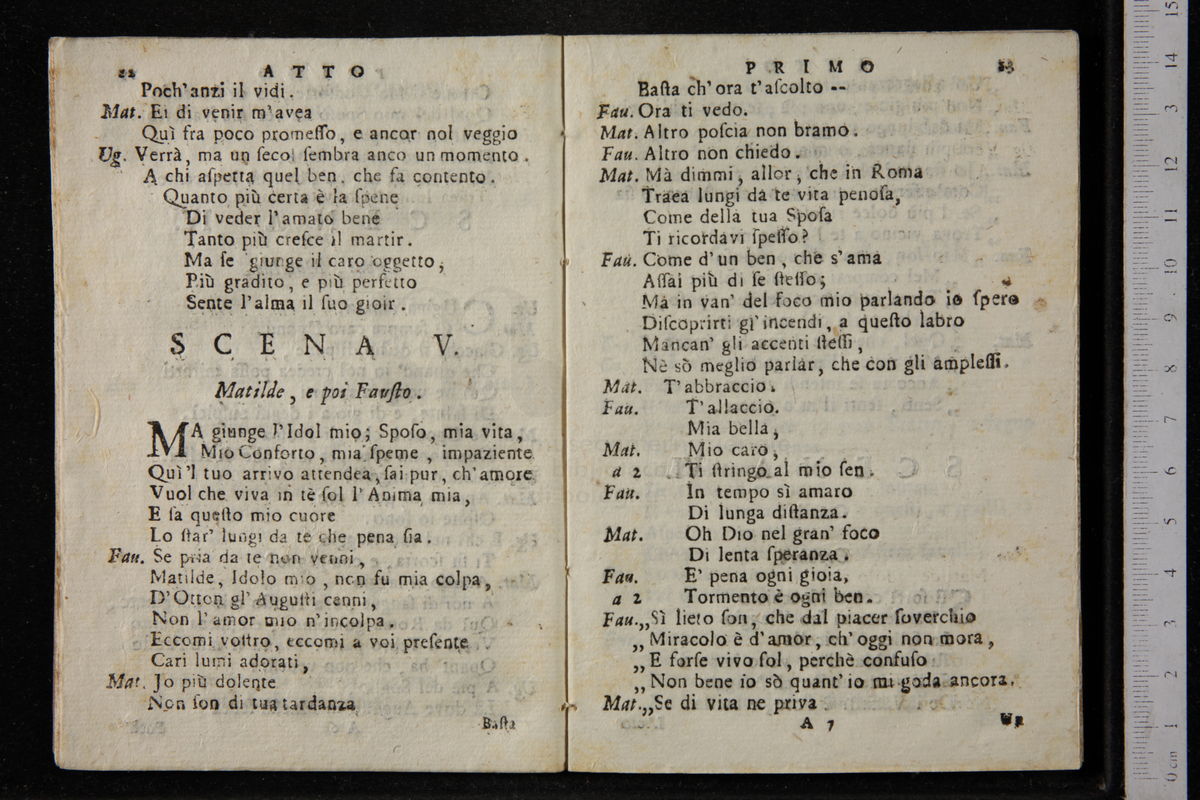 22 ATTO
Poch'anzi il vidi.
Mat. Ei di venir m'avea
Quì fra poco promeſſo, e ancor nol veggio
Ug. Verrà, ma un ſecol ſembra anco un momento.
A chi aſpetta quel ben, che fa contento.
Quanto più certa è la ſpene
Di veder l'amato bene
Tanto più creſce il martir.
Ma ſe giunge il caro oggetto,
Più gradito, e più perfetto
Sente l'alma il ſuo gioir.
SCENA V.
Matilde, e poi Fauſto.
MA giunge l'Idol mio; Spoſo, mia vita,
Mio Conforto, mia ſpeme, impaziente
Quì'l tuo arrivo attendea, ſai pur, ch'amore
Vuol che viva in tè ſol l'Anima mia,
E ſa queſto mio cuore
Lo ſtar' lungi da te che pena ſia.
Fau. Se pria da te non venni,
Matilde, Idolo mio, non fu mia colpa,
D'Otton gl'Auguſti cenni,
Non l'amor mio n'incolpa.
Eccomi voſtro, eccomi a voi preſente
Cari lumi adorati,
Mat. Jo più dolente
Non ſon di tua tardanza
Baſta
PRIMO 23
Baſta ch'ora t'aſcolto --
Fau. Ora ti vedo.
Mat. Altro poſcia non bramo.
Fau. Altro non chiedo.
Mat. Mà dimmi, allor, che in Roma
Traea lungi da te vita penoſa,
Come della tua Spoſa
Ti ricordavi ſpeſſo?
Fau. Come d'un ben, che s'ama
Aſſai più di ſe ſteſſo;
Mà in van' del foco mio parlando io ſpero
Diſcoprirti gl'incendi, a queſto labro
Mancan' gli accenti ſteſſi,
Nè sò meglio parlar, che con gli ampleſſi.
Mat. T'abbraccio.
Fau. T'allaccio.
Mia bella,
Mat. Mio caro,
a 2 Ti ſtringo al mio ſen.
Fau. In tempo sì amaro
Di lunga diſtanza.
Mat. Oh Dio nel gran' foco
Di lenta ſperanza.
Fau. E' pena ogni gioia,
a 2 Tormento è ogni ben.
Fau. „Sì lieto ſon, che dal piacer ſoverchio
„Miracolo è d'amor, ch'oggi non mora,
„E forſe vivo ſol, perchè confuſo
„Non bene io sò quant'io mi goda ancora.
Mat. „Se di vita ne priva
A 7